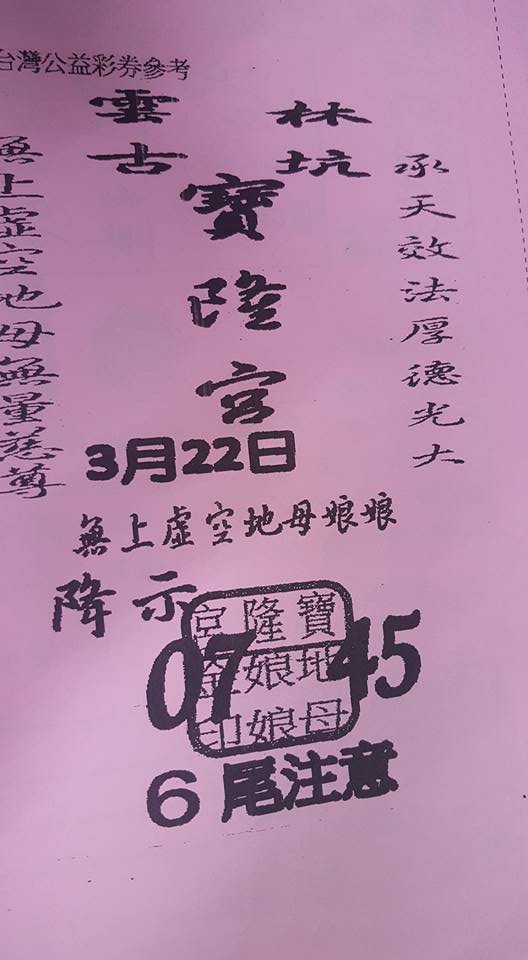 台灣公益彩券參考
雲林
古坑
寶隆宮
承天效法厚德光大
無上虛空地母無量慈尊
3月22日
無上虛空地母娘娘
降示
07 45
寶隆宮
地娘金
母娘印
6尾注意